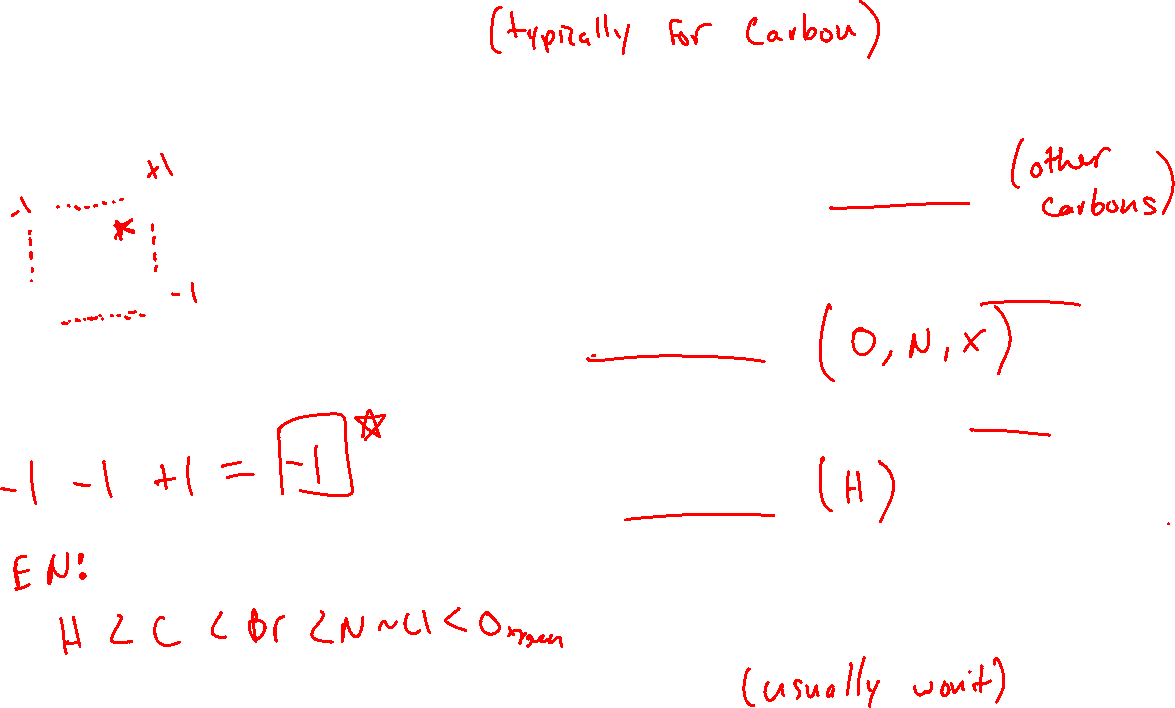 (typically for carbon)
+1
(other
carbons)
-1
-1
(O, N, X)
-1 -1 +1 = -1
(H)
EN:
H < C < Br < N ~ Cl < Oxygen
(usually won't)